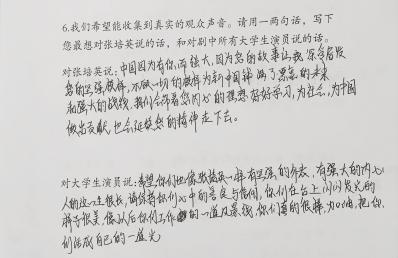 6.我们希望能收集到真实的观众声音。请用一两句话,写下
您最想对张培英说的话,和对剧中所有大学生演员说的话。
对张培英说:中国因为有你,而强大,因为您的故事让我深受启发
您的坚强 一切的 为新中国 满了 的未来
和强大的战线,我们会带着您内心的理想好好学习,为社会,为中国
做出贡献,也会延续您的精神走下去。
对大学生演员说:希望你们也像张培英一样有坚强的外表,有强大的内心
人的这一生很长,请保持你们心中的善良与信仰,你们在台上闪闪发光的
样子很美,像以后你们工作 的一道风景线,你们真的很棒,为 ,把你
们活成自己的一道光